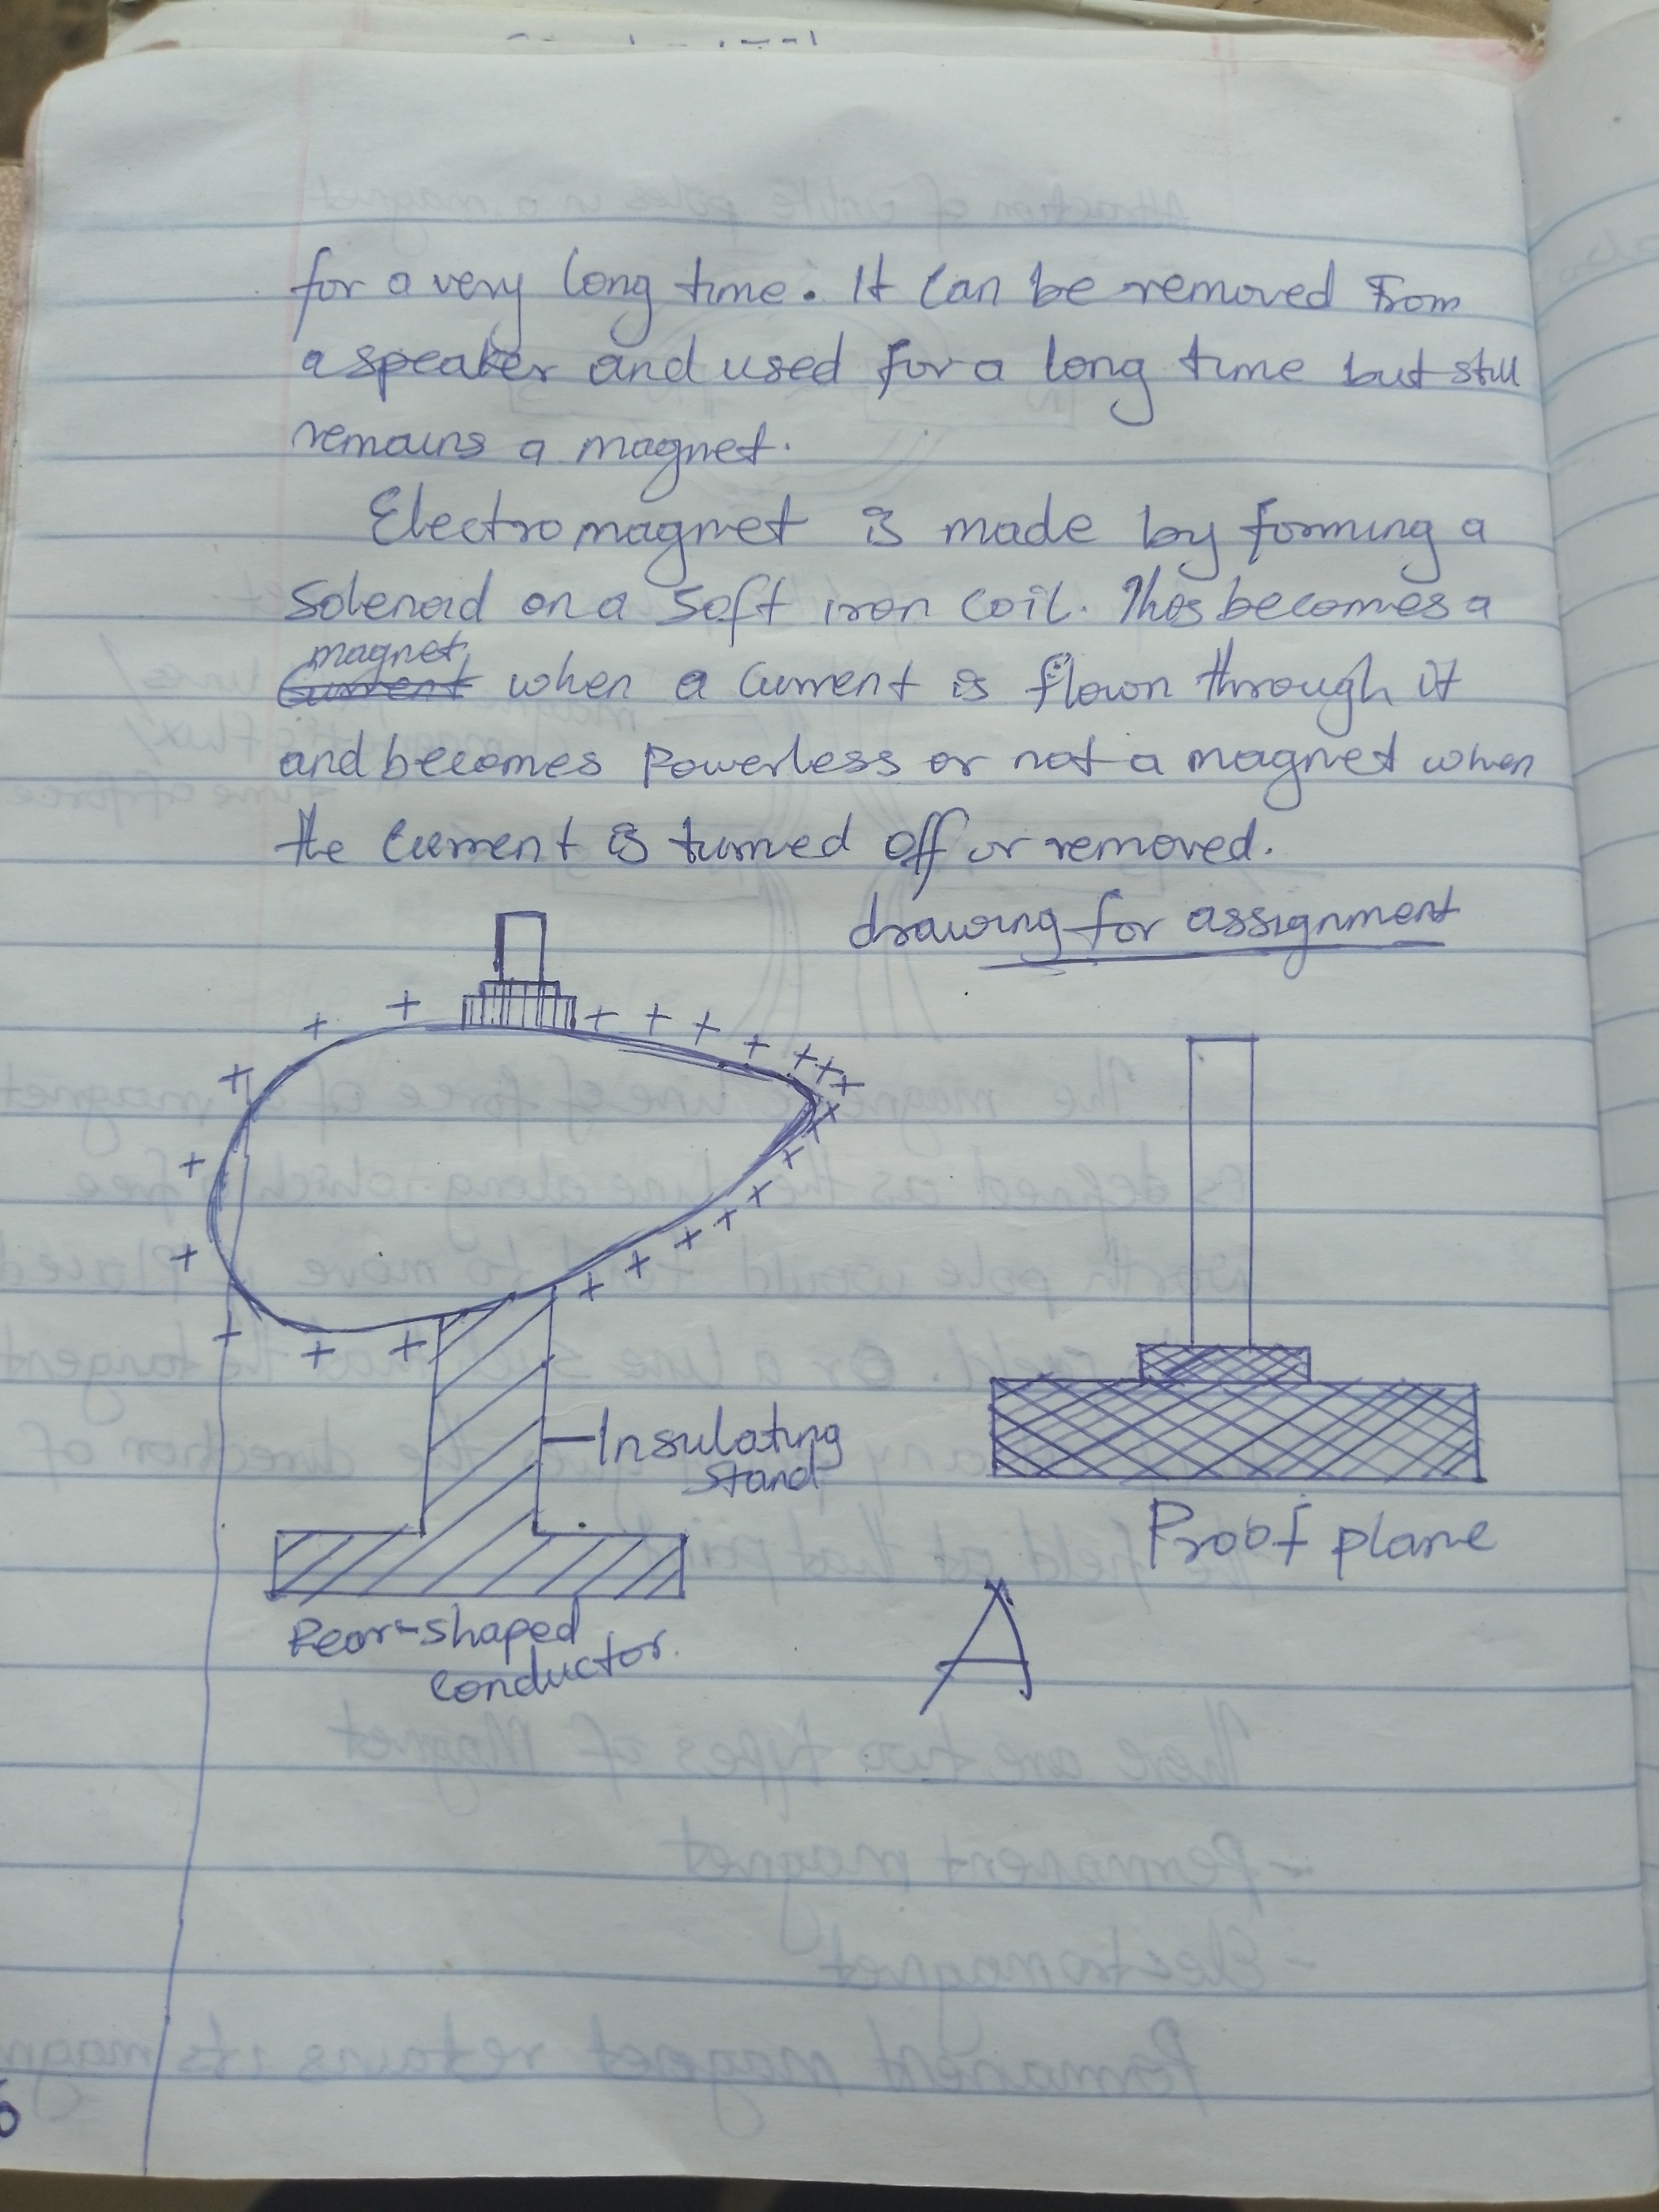 for a very long time. It can be removed From
a speaker and used for a long time but still
remains a magnet.
Electromagnet is made by forming a
Solenoid on a soft iron coil. This becomes a
magnet
current when a current is flown through it
and becomes powerless or not a magnet when
the current is turned off or removed.
drawing for assignment
+ + + + + + + + + +
Insulating
stand
Proof plane
Pear-shaped
conductor.
A
There are two types of Magnet
- Permanent magnet
- Electromagnet
Permanent magnet retains its magn